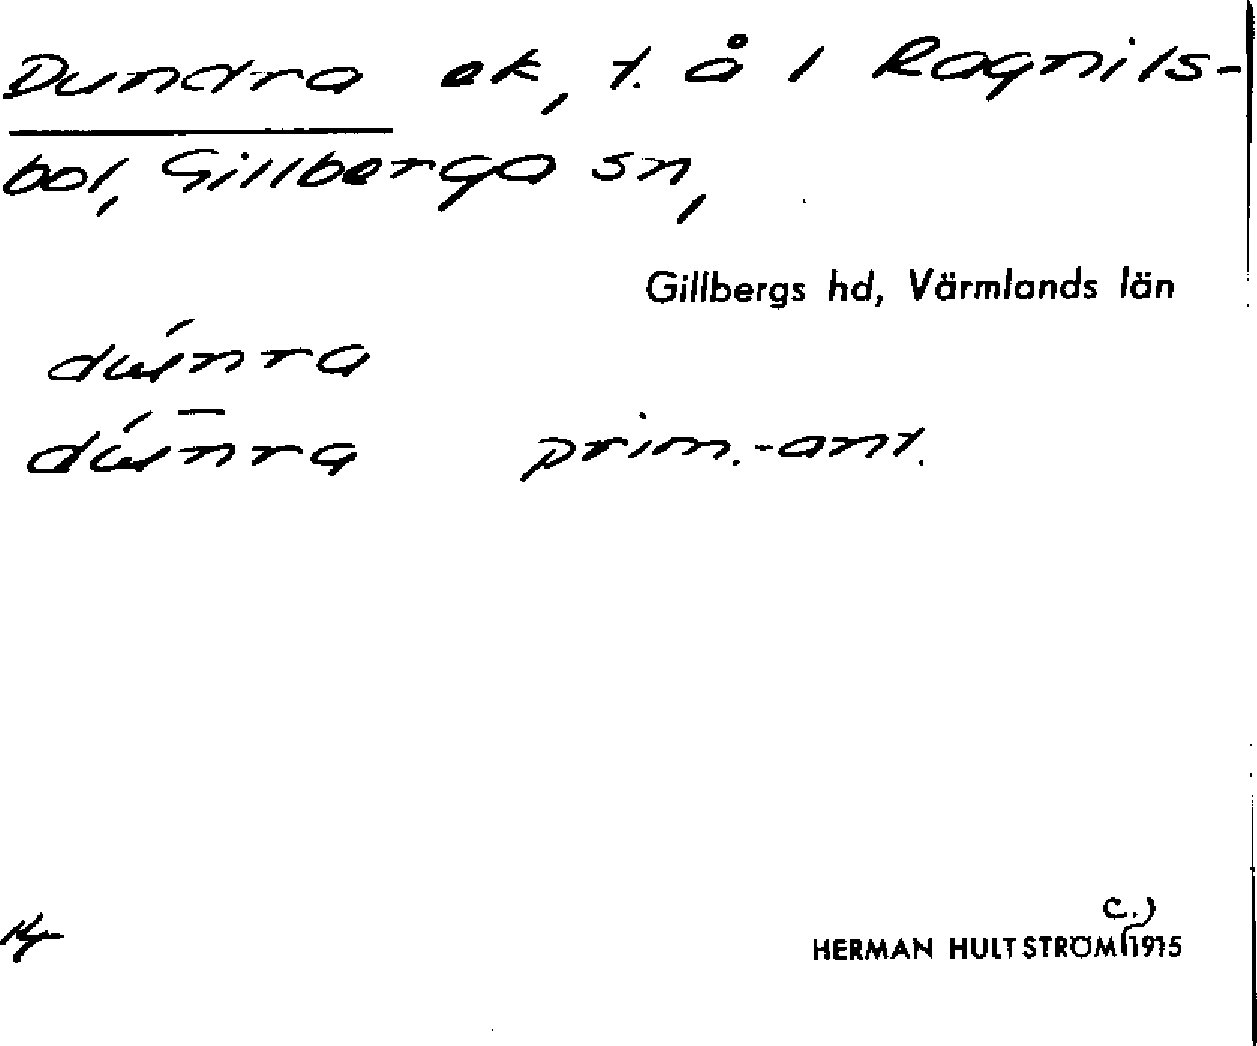 Dundra ek, t. å i Ragnils-
bol, Gillberga sn,
Gillbergs hd, Värmlands län
dúnra
dún̄ra prim.-ant.
C.)
HERMAN HULTSTRÖM 1915